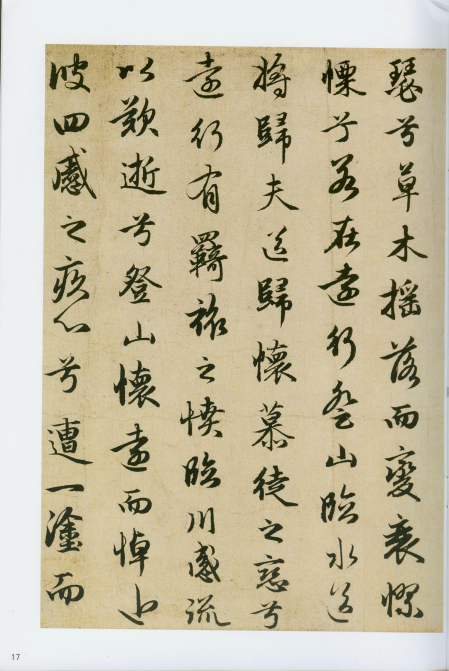 瑟兮草木搖落而變衰憭
慄兮若在遠行登山臨水送
將歸夫送歸懷慕徒之戀兮
遠行有羇旅之憤臨川感流
以歎逝兮登山懷遠而悼近
彼四慼之疚心兮遭一塗而
17